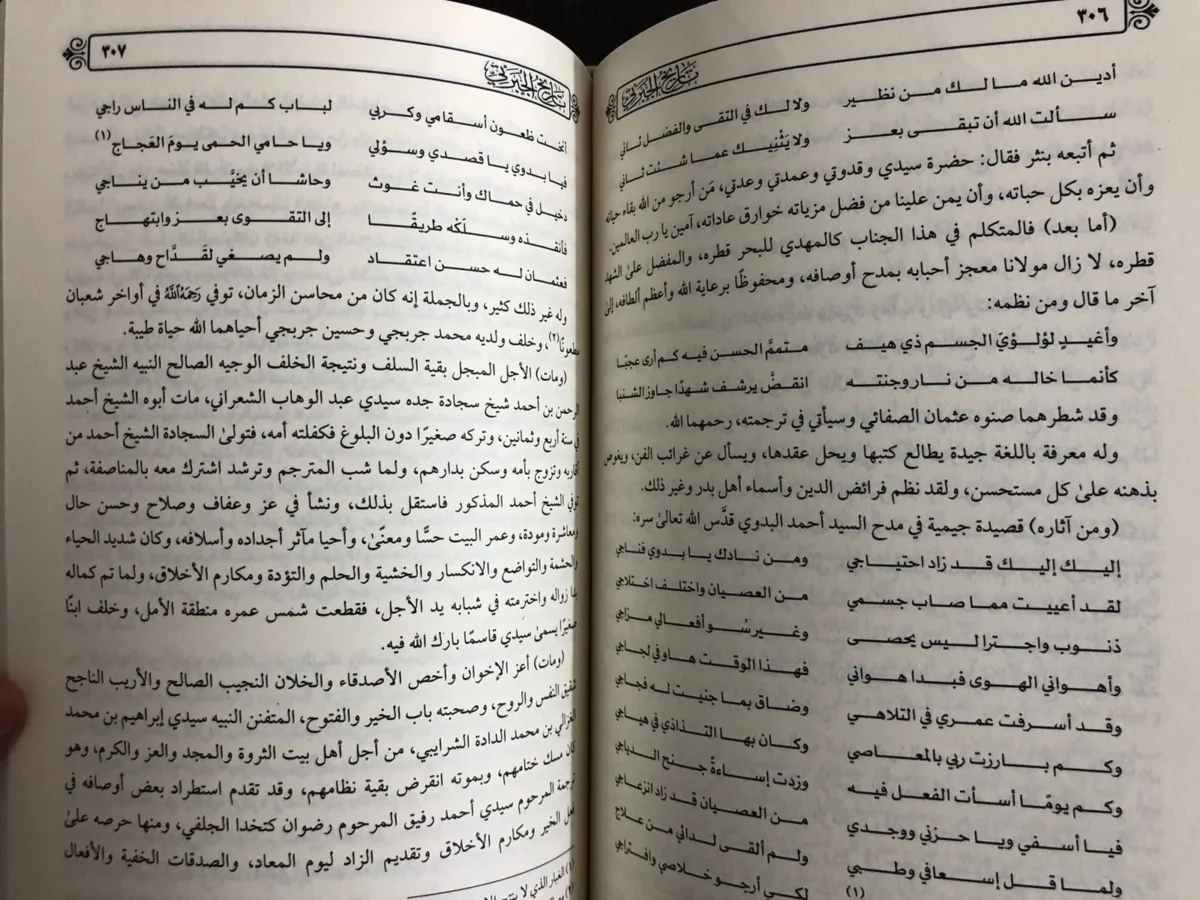 ٣٠٦
تاريخ الجبرتي
أدين الله ما لك من نظير ولا لك في التقى والفضل ثاني
سألت الله أن تبقى بعز ولا يَثْنِيك عما شئت ثاني
ثم أتبعه بنثر فقال: حضرة سيدي وقدوتي وعمدتي وعدتي، مَن أرجو من الله بقاء حياته
وأن يعزه بكل حباته، وأن يمن علينا من فضل مزياته خوارق عاداته، آمين يا رب العالمين.
(أما بعد) فالمتكلم في هذا الجناب كالمهدي للبحر قطره، والمفضل علىٰ الشهد
قطره، لا زال مولانا معجز أحبابه بمدح أوصافه، ومحفوظًا برعاية الله وأعظم ألطافه، إلىٰ
آخر ما قال ومن نظمه:
وأغيدٍ لؤلؤيَ الجسم ذي هيف متممَّ الحسن فيه كم أرى عجبًا
كأنما خاله من نار وجنته انقضَّ يرشف شهدًا جاوز الشنبا
وقد شطرهما صنوه عثمان الصفائي وسيأتي في ترجمته، رحمهما الله.
وله معرفة باللغة جيدة يطالع كتبها ويحل عقدها، ويسأل عن غرائب الفن، ويغوص
بذهنه علىٰ كل مستحسن، ولقد نظم فرائض الدين وأسماء أهل بدر وغير ذلك.
(ومن آثاره) قصيدة جيمية في مدح السيد أحمد البدوي قدَّس الله تعالىٰ سره:
إليك إليك قد زاد احتياجي ومن نادك يا بدوي فناجي
لقد أعييت مما صاب جسمي من العصيان واختلف اختلاجي
ذنوب واجترا ليس يحصى وغير سُو أفعالي مزاجي
وأهواني الهوى فبدا هواني فهذا الوقت هاو في لجاجي
وقد أسرفت عمري في التلاهي وضاق بما جنيت له فجاجي
وكم بارزت ربي بالمعاصي وكان بها التذاذي في هياجي
وكم يومًا أسأت الفعل فيه وزدت إساءةً جنح الدياجي
فيا أسفي ويا حزني ووجدي من العصيان قد زاد انزعاجي
ولما قل إسعافي وطبي ولم ألقى لدائي من علاج
(١) لكي أرجو خلاصي وافتراجي
٣٠٧
تاريخ الجبرتي
أنخت ظعون أسقامي وكربي لباب كم له في الناس راجي
فيا بدوي يا قصدي وسؤلي ويا حامي الحمى يومَ العَجاج(١)
دخيل في حماك وأنت غوث وحاشا أن يخيَّب من يناجي
فأنقذه وسلّكْه طريقًا إلى التقوى بعز وابتهاج
فعثمان له حسن اعتقاد ولم يصغي لقَدَّاح وهاجي
وله غير ذلك كثير، وبالجملة إنه كان من محاسن الزمان، توفي رَحِمَهُ اللَّهُ في أواخر شعبان
مطعونًا(٢)، وخلف ولديه محمد جربجي وحسين جربجي أحياهما الله حياة طيبة.
(ومات) الأجل المبجل بقية السلف ونتيجة الخلف الوجيه الصالح النبيه الشيخ عبد
الرحمن بن أحمد شيخ سجادة جده سيدي عبد الوهاب الشعراني، مات أبوه الشيخ أحمد
في سنة أربع وثمانين، وتركه صغيرًا دون البلوغ فكفلته أمه، فتولىٰ السجادة الشيخ أحمد من
أقاربه وتزوج بأمه وسكن بدارهم، ولما شب المترجم وترشد اشترك معه بالمناصفة، ثم
توفي الشيخ أحمد المذكور فاستقل بذلك، ونشأ في عز وعفاف وصلاح وحسن حال
ومعاشرة ومودة، وعمر البيت حسًّا ومعنًى، وأحيا مآثر أجداده وأسلافه، وكان شديد الحياء
والحشمة والتواضع والانكسار والخشية والحلم والتؤدة ومكارم الأخلاق، ولما تم كماله
بدا زواله واخترمته في شبابه يد الأجل، فقطعت شمس عمره منطقة الأمل، وخلف ابنًا
صغيرًا يسمىٰ سيدي قاسمًا بارك الله فيه.
(ومات) أعز الإخوان وأخص الأصدقاء والخلان النجيب الصالح والأريب الناجح
شقيق النفس والروح، وصحبته باب الخير والفتوح، المتفنن النبيه سيدي إبراهيم بن محمد
الغزالي بن محمد الدادة الشرايبي، من أجل أهل بيت الثروة والمجد والعز والكرم، وهو
كان مسك ختامهم، وبموته انقرض بقية نظامهم، وقد تقدم استطراد بعض أوصافه في
ترجمة المرحوم سيدي أحمد رفيق المرحوم رضوان كتخدا الجلفي، ومنها حرصه علىٰ
فعل الخير ومكارم الأخلاق وتقديم الزاد ليوم المعاد، والصدقات الخفية والأفعال
(١) الغبار الذي لا
(٢)